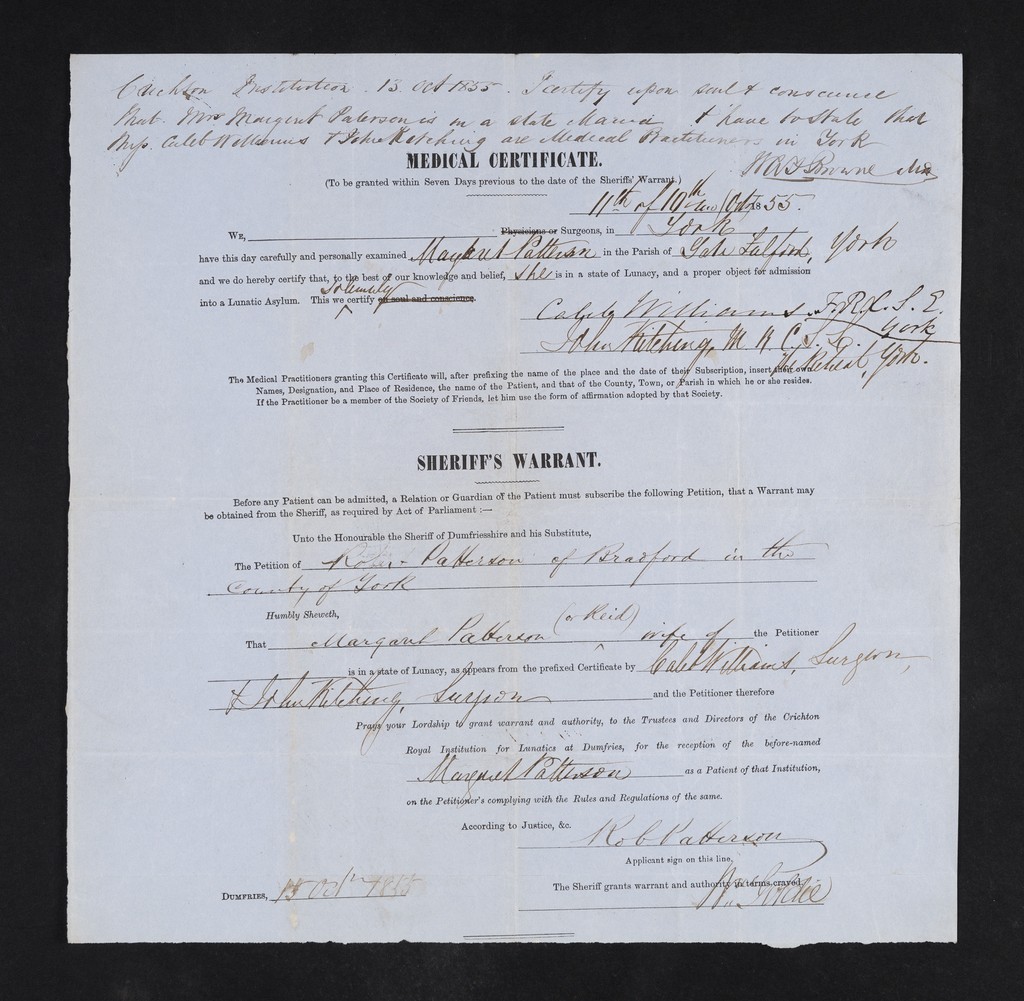 Crichton Institution. 13. Oct 1855. I certify upon soul & conscience
that Mrs Margaret Paterson is in a state Mania & have to state that
Caleb Williams & John Kitching are Medical Practitioners in York
MEDICAL CERTIFICATE.
W A F Browne
(To be granted within Seven Days previous to the date of the Sheriffs' Warrant.)
11th of 10th (Oct) 1855.
We, Physicians or Surgeons, in York
have this day carefully and personally examined Margaret Patterson in the Parish of Gate Fulford, York
and we do hereby certify that, to the best of our knowledge and belief, she is in a state of Lunacy, and a proper object for admission
into a Lunatic Asylum. This we solemnly certify on soul and conscience.
Caleb Williams. F.R.C.S.E.
York
John Kitching, M.R.C.S.L.
The Retreat, York.
The Medical Practitioners granting this Certificate will, after prefixing the name of the place and the date of their Subscription, insert their own
Names, Designation, and Place of Residence, the name of the Patient, and that of the County, Town, or Parish in which he or she resides.
If the Practitioner be a member of the Society of Friends, let him use the form of affirmation adopted by that Society.
SHERIFF'S WARRANT.
Before any Patient can be admitted, a Relation or Guardian of the Patient must subscribe the following Petition, that a Warrant may
be obtained from the Sheriff, as required by Act of Parliament :—
Unto the Honourable the Sheriff of Dumfriesshire and his Substitute,
The Petition of Robert Patterson of Bradford in the
County of York
Humbly Sheweth,
That Margaret Patterson (or Reid) wife of the Petitioner
is in a state of Lunacy, as appears from the prefixed Certificate by Caleb Williams, Surgeon,
& John Kitching, Surgeon and the Petitioner therefore
Prays your Lordship to grant warrant and authority, to the Trustees and Directors of the Crichton
Royal Institution for Lunatics at Dumfries, for the reception of the before-named
Margaret Patterson as a Patient of that Institution,
on the Petitioner's complying with the Rules and Regulations of the same.
According to Justice, &c.
Rob Patterson
Applicant sign on this line,
The Sheriff grants warrant and authority in terms craved.
Dumfries, 15 Octr 1855
Wm Goldie